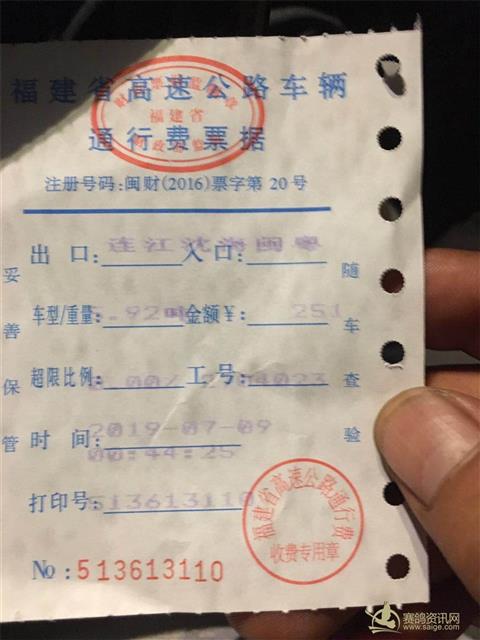 福建省高速公路车辆
通行费票据
福建省
注册号码:闽财(2016)票字第20号
出口: 连江沈海闽粤 入口:
车型/重量: .92 金额¥: 251
超限比例: 0.00/ 工号: 4023
时间: 2019-07-09
00:44:25
打印号: 513613110
妥善保管
随车查验
福建省高速公路通行费
收费专用章
No:513613110
赛鸽资讯网
www.saige.com